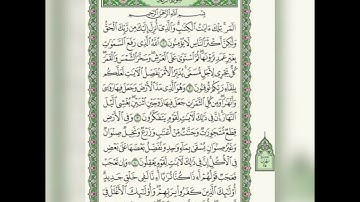 بِسْمِ اللَّهِ الرَّحْمَٰنِ الرَّحِيمِ
الٓمٓر تِلْكَ ءَايَٰتُ الْكِتَٰبِ وَالَّذِي أُنزِلَ إِلَيْكَ مِن رَّبِّكَ الْحَقُّ
وَلَٰكِنَّ أَكْثَرَ النَّاسِ لَا يُؤْمِنُونَ ١ اللَّهُ الَّذِي رَفَعَ السَّمَٰوَٰتِ
بِغَيْرِ عَمَدٍ تَرَوْنَهَا ثُمَّ اسْتَوَىٰ عَلَى الْعَرْشِ وَسَخَّرَ الشَّمْسَ وَالْقَمَرَ
كُلٌّ يَجْرِي لِأَجَلٍ مُّسَمًّى يُدَبِّرُ الْأَمْرَ يُفَصِّلُ الْءَايَٰتِ لَعَلَّكُم
بِلِقَاءِ رَبِّكُمْ تُوقِنُونَ ٢ وَهُوَ الَّذِي مَدَّ الْأَرْضَ وَجَعَلَ فِيهَا رَوَٰسِيَ
وَأَنْهَٰرًا وَمِن كُلِّ الثَّمَرَٰتِ جَعَلَ فِيهَا زَوْجَيْنِ اثْنَيْنِ يُغْشِي الَّيْلَ
النَّهَارَ إِنَّ فِي ذَٰلِكَ لَءَايَٰتٍ لِّقَوْمٍ يَتَفَكَّرُونَ ٣ وَفِي الْأَرْضِ
قِطَعٌ مُّتَجَٰوِرَٰتٌ وَجَنَّٰتٌ مِّنْ أَعْنَٰبٍ وَزَرْعٌ وَنَخِيلٌ صِنْوَانٌ
وَغَيْرُ صِنْوَانٍ يُسْقَىٰ بِمَاءٍ وَٰحِدٍ وَنُفَضِّلُ بَعْضَهَا عَلَىٰ بَعْضٍ
فِي الْأُكُلِ إِنَّ فِي ذَٰلِكَ لَءَايَٰتٍ لِّقَوْمٍ يَعْقِلُونَ ٤ وَإِن تَعْجَبْ
فَعَجَبٌ قَوْلُهُمْ أَءِذَا كُنَّا تُرَٰبًا أَءِنَّا لَفِي خَلْقٍ جَدِيدٍ
أُولَٰئِكَ الَّذِينَ كَفَرُوا بِرَبِّهِمْ وَأُولَٰئِكَ الْأَغْلَٰلُ فِي